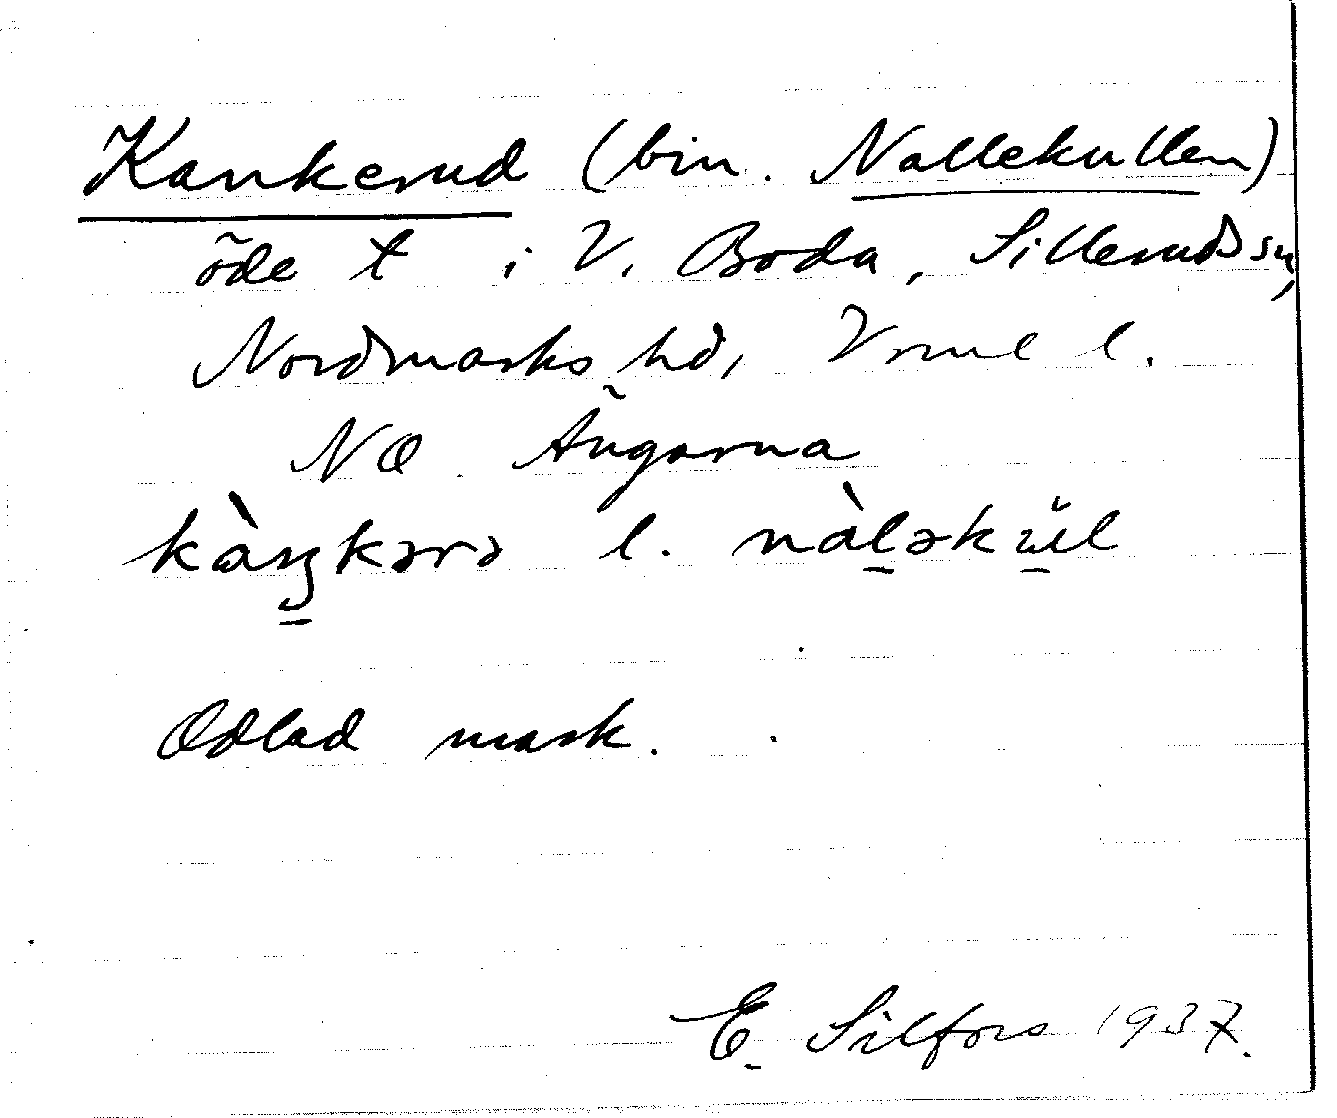 Kankerud (bin. Nallekullen)
öde t i V. Boda, Sillerudssn,
Nordmarks hd, Vrml l.
NO Ängarna
kàŋkərə l. nàləkŭl
Odlad mark.
E. Silfors 1937.